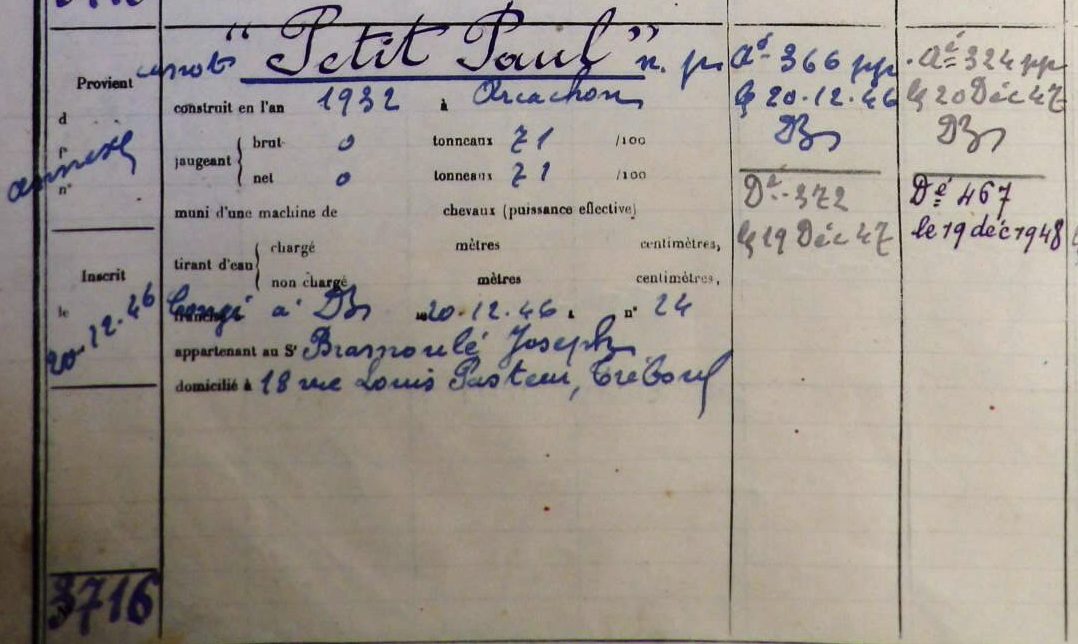 Provient
d
annexe
n°
Inscrit
le 20-12-46
3716
canot "Petit Paul" n. p.
construit en l'an 1932 à Arcachon
jaugeant { brut 0 tonneaux 71 /100
net 0 tonneaux 71 /100
muni d'une machine de chevaux (puissance effective)
tirant d'eau { chargé mètres centimètres,
non chargé mètres centimètres,
Congé à DZ 20.12.46 n° 24
appartenant au Sr Bramoulé Joseph
domicilié à 18 rue Louis Pasteur, Tréboul
Aé 366 pp
le 20.12.46
DZ
Dé 372
le 19 Déc 47
Aé 324 pp
le 20 Déc 47
DZ
Dé 467
le 19 déc 1948